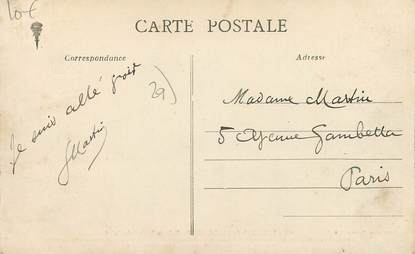 10€
CARTE POSTALE
Correspondance
Adresse
Je suis allé
GMartin
29)
Madame Martin
5 Avenue Gambetta
Paris